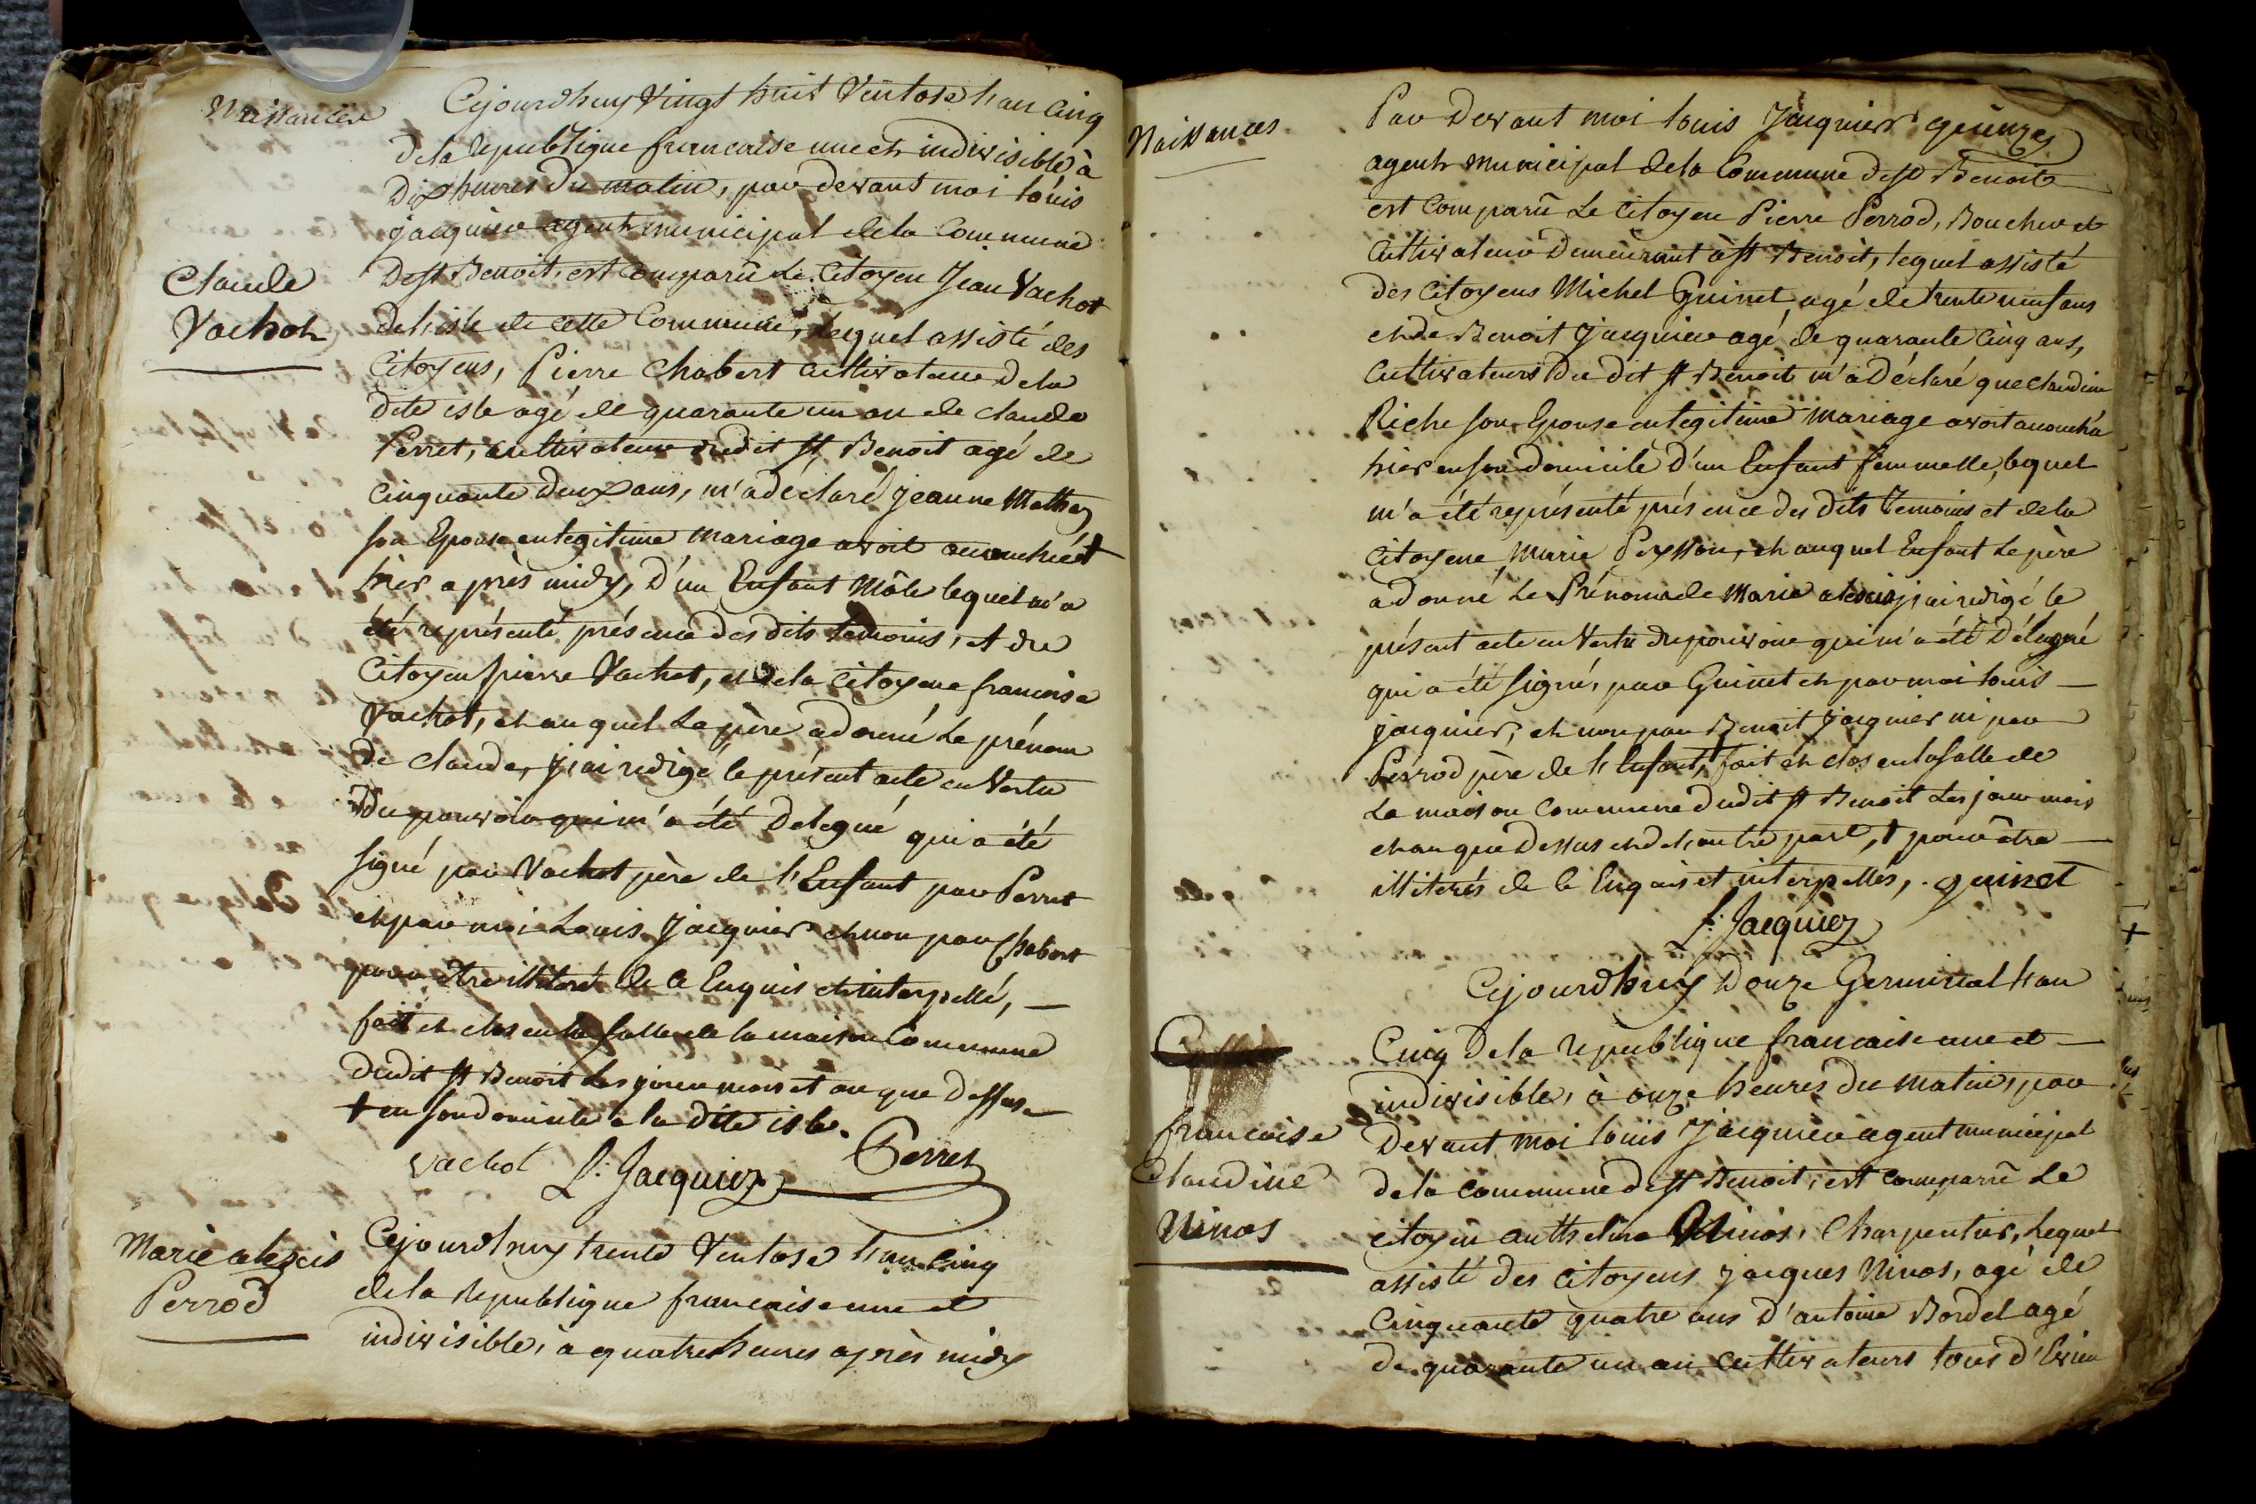 Naissances
Cejourdhuy Vingt huit Ventose l'an cinq
de la republique francaise une et indivisible à
dix heures du matin, par devant moi louis
jacquier agent municipal de la Commune
de st Benoit, est comparu le citoyen Jean Vachot
Claude
Vachot
de l'isle de cette Commune, lequel assisté des
citoyens, Pierre Chabert cultivateur de la
dite isle agé de quarante un an de claude
Perret, cultivateur dudit st Benoit agé de
cinquante deux ans, m'a declaré jeanne Mathey
son Epouse en legitime mariage avoit accouchée +
hier après midy, d'un Enfant Mâle lequel m'a
été représenté présence des dits temoins, et du
Citoyen pierre Vachot, et de la citoyene francoise
Vachot, et au quel le père a donné le prénom
de claude, j'ai redigé le présent acte en Vertu
du pouvoir qui m'a été delegué qui a été
signé par Vachot père de l'Enfant par Perret
et par moi Louis Jacquier et non par Chabert
pour être illiteré de ce Enquis et interpellé, —
fait et clos en la salle de la maison Commune
dudit st Benoit les jour mois et an que dessus
+ en son domicile a la dite isle.
vachot L. Jacquier Perret
Marie alexis
Perrod
Cejourdhuy trente Ventose l'an cinq
de la Republique francaise une et
indivisible, à quatre heures après midy
Naissances
Par devant moi louis Jacquier
agent municipal de la Commune de st Benoit
est comparu le citoyen Pierre Perrod, Boucher et
cultivateur demeurant à st Benoit, lequel assisté
des citoyens Michel Guinet agé de trente neuf ans
et de Benoit Jacquier agé de quarante cinq ans,
cultivateurs du dit st Benoit m'a déclaré que claudine
Riche son Epouse en legitime mariage avoit accouchée
hier en son domicile d'un Enfant femmelle, lequel
m'a été représenté présence des dits temoins et de la
citoyene Marie Peysson, et auquel Enfant le père
a donné le Prénom de Marie alexis j'ai redigé le
présent acte en Vertu du pouvoir qui m'a été délegué
qui a été signé, par Guinet et par moi louis —
jacquier, et non par Benoit Jacquier ni par
Perrod père de l'Enfant, + fait et clos en la salle de
la maison commune dudit st Benoit les jour mois
et an que dessus et de l'autre part, + pour être —
illiterés de ce Enquis et interpellés, . guinet
L. Jacquier
Cejourdhuy Douze Germinal l'an
Cinq de la republique francaise une et —
indivisible, à onze heures du matin, par
francoise
claudine
Ninos
devant moi louis Jacquier agent municipal
de la commune de st Benoit, est comparu le
citoyen Anthelme Ninos, Charpentier, lequel
assisté des citoyens jacques Ninos, agé de
cinquante quatre ans d'antoine Bordel agé
de quarante un an cultivateurs tous d'Evieu